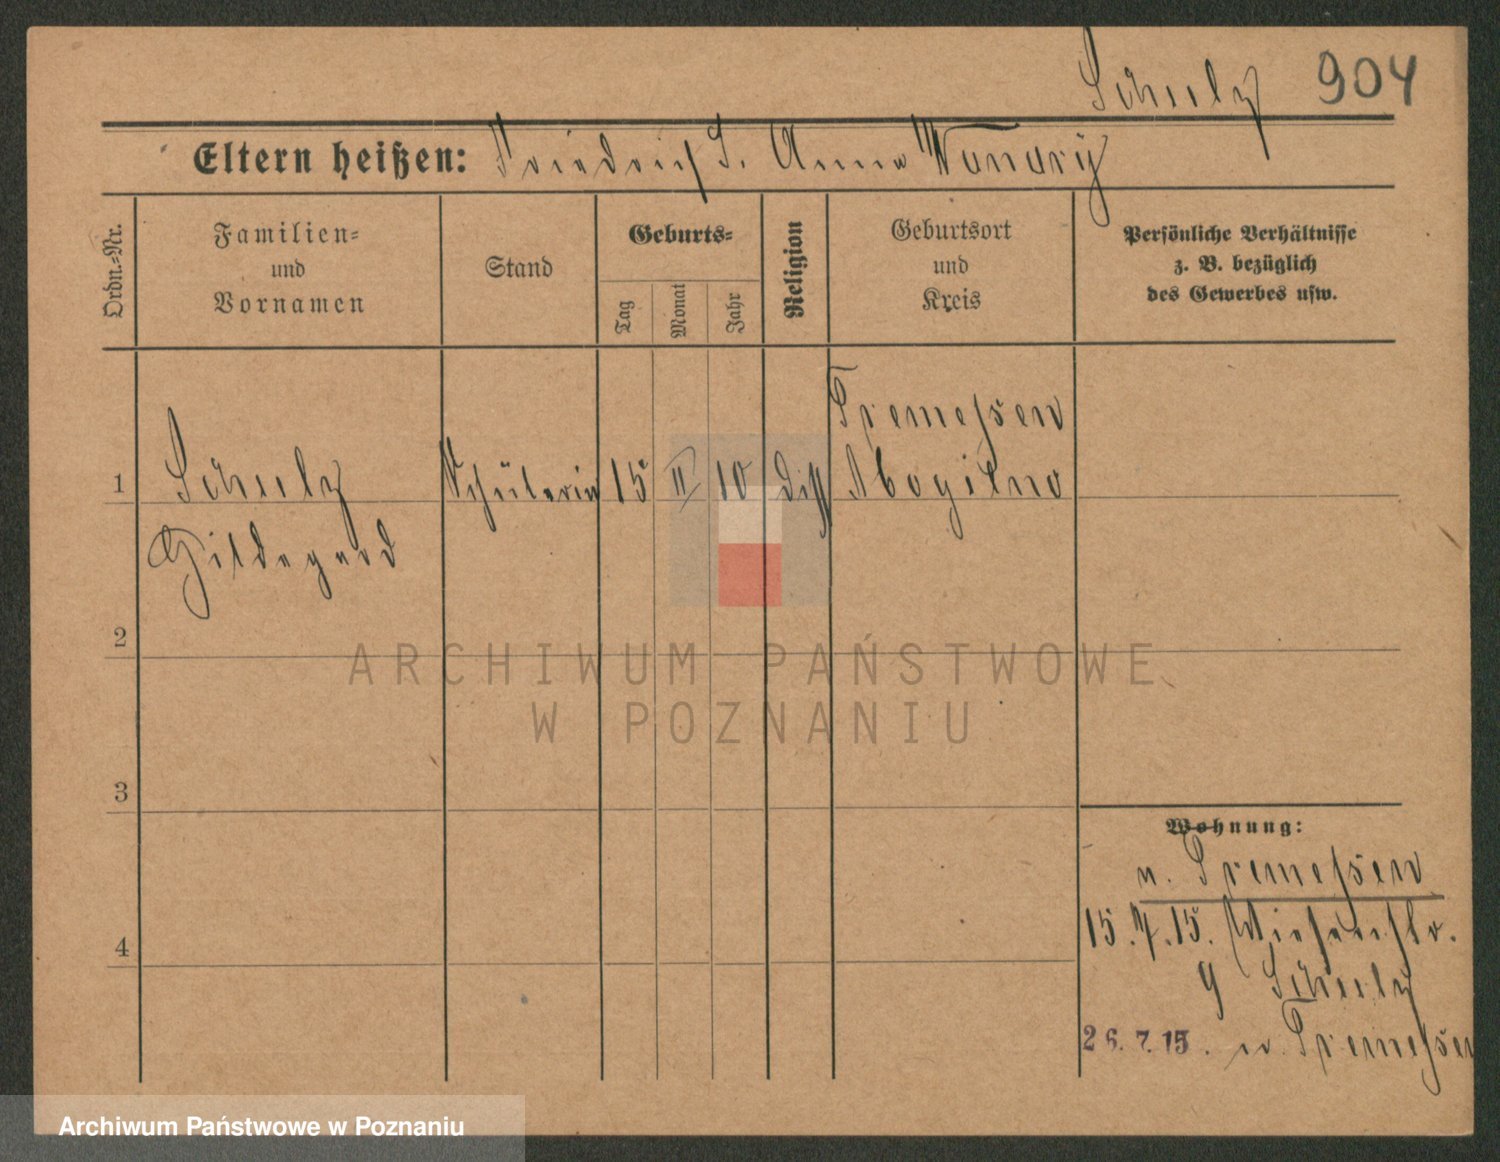 Schulz 904
Eltern heißen: Friedrich S. Anna
Ordn.-Nr.
Familien-
und
Vornamen
Stand
Geburts-
Tag
Monat
Jahr
Religion
Geburtsort
und
Kreis
Persönliche Verhältnisse
z. B. bezüglich
des Gewerbes usw.
Tremessen
1 Schulz Schülerin 15 II 10 diss Mogilno
Hildegard
2
3
4
ARCHIWUM PAŃSTWOWE
W POZNANIU
Wohnung:
v. Tremessen
15.7.15. Wiesenstr.
9 Schulz
26.7.15. n. Tremessen
Archiwum Państwowe w Poznaniu